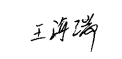 王海瑞